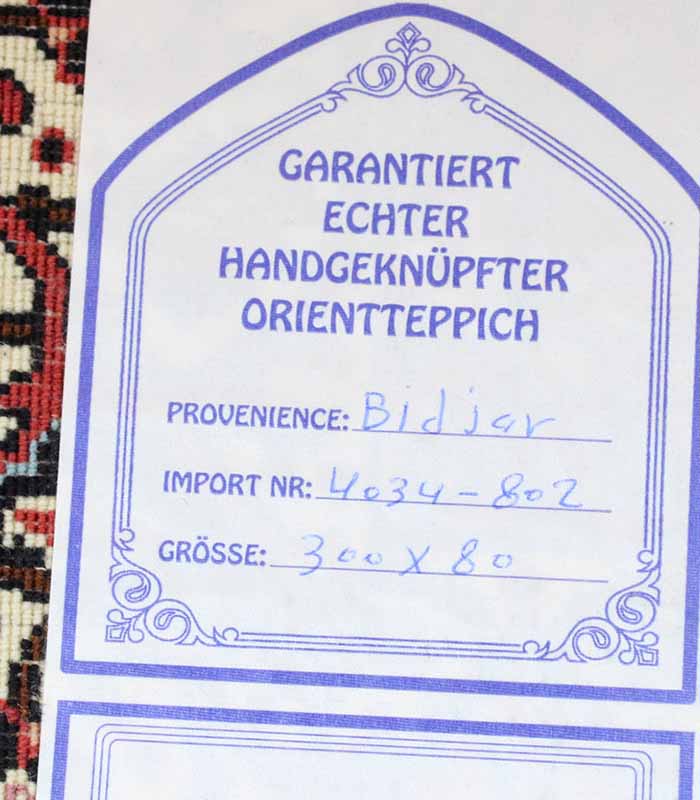 GARANTIERT
ECHTER
HANDGEKNÜPFTER
ORIENTTEPPICH
PROVENIENCE: Bidjar
IMPORT NR: 4034-802
GRÖSSE: 300 X 80